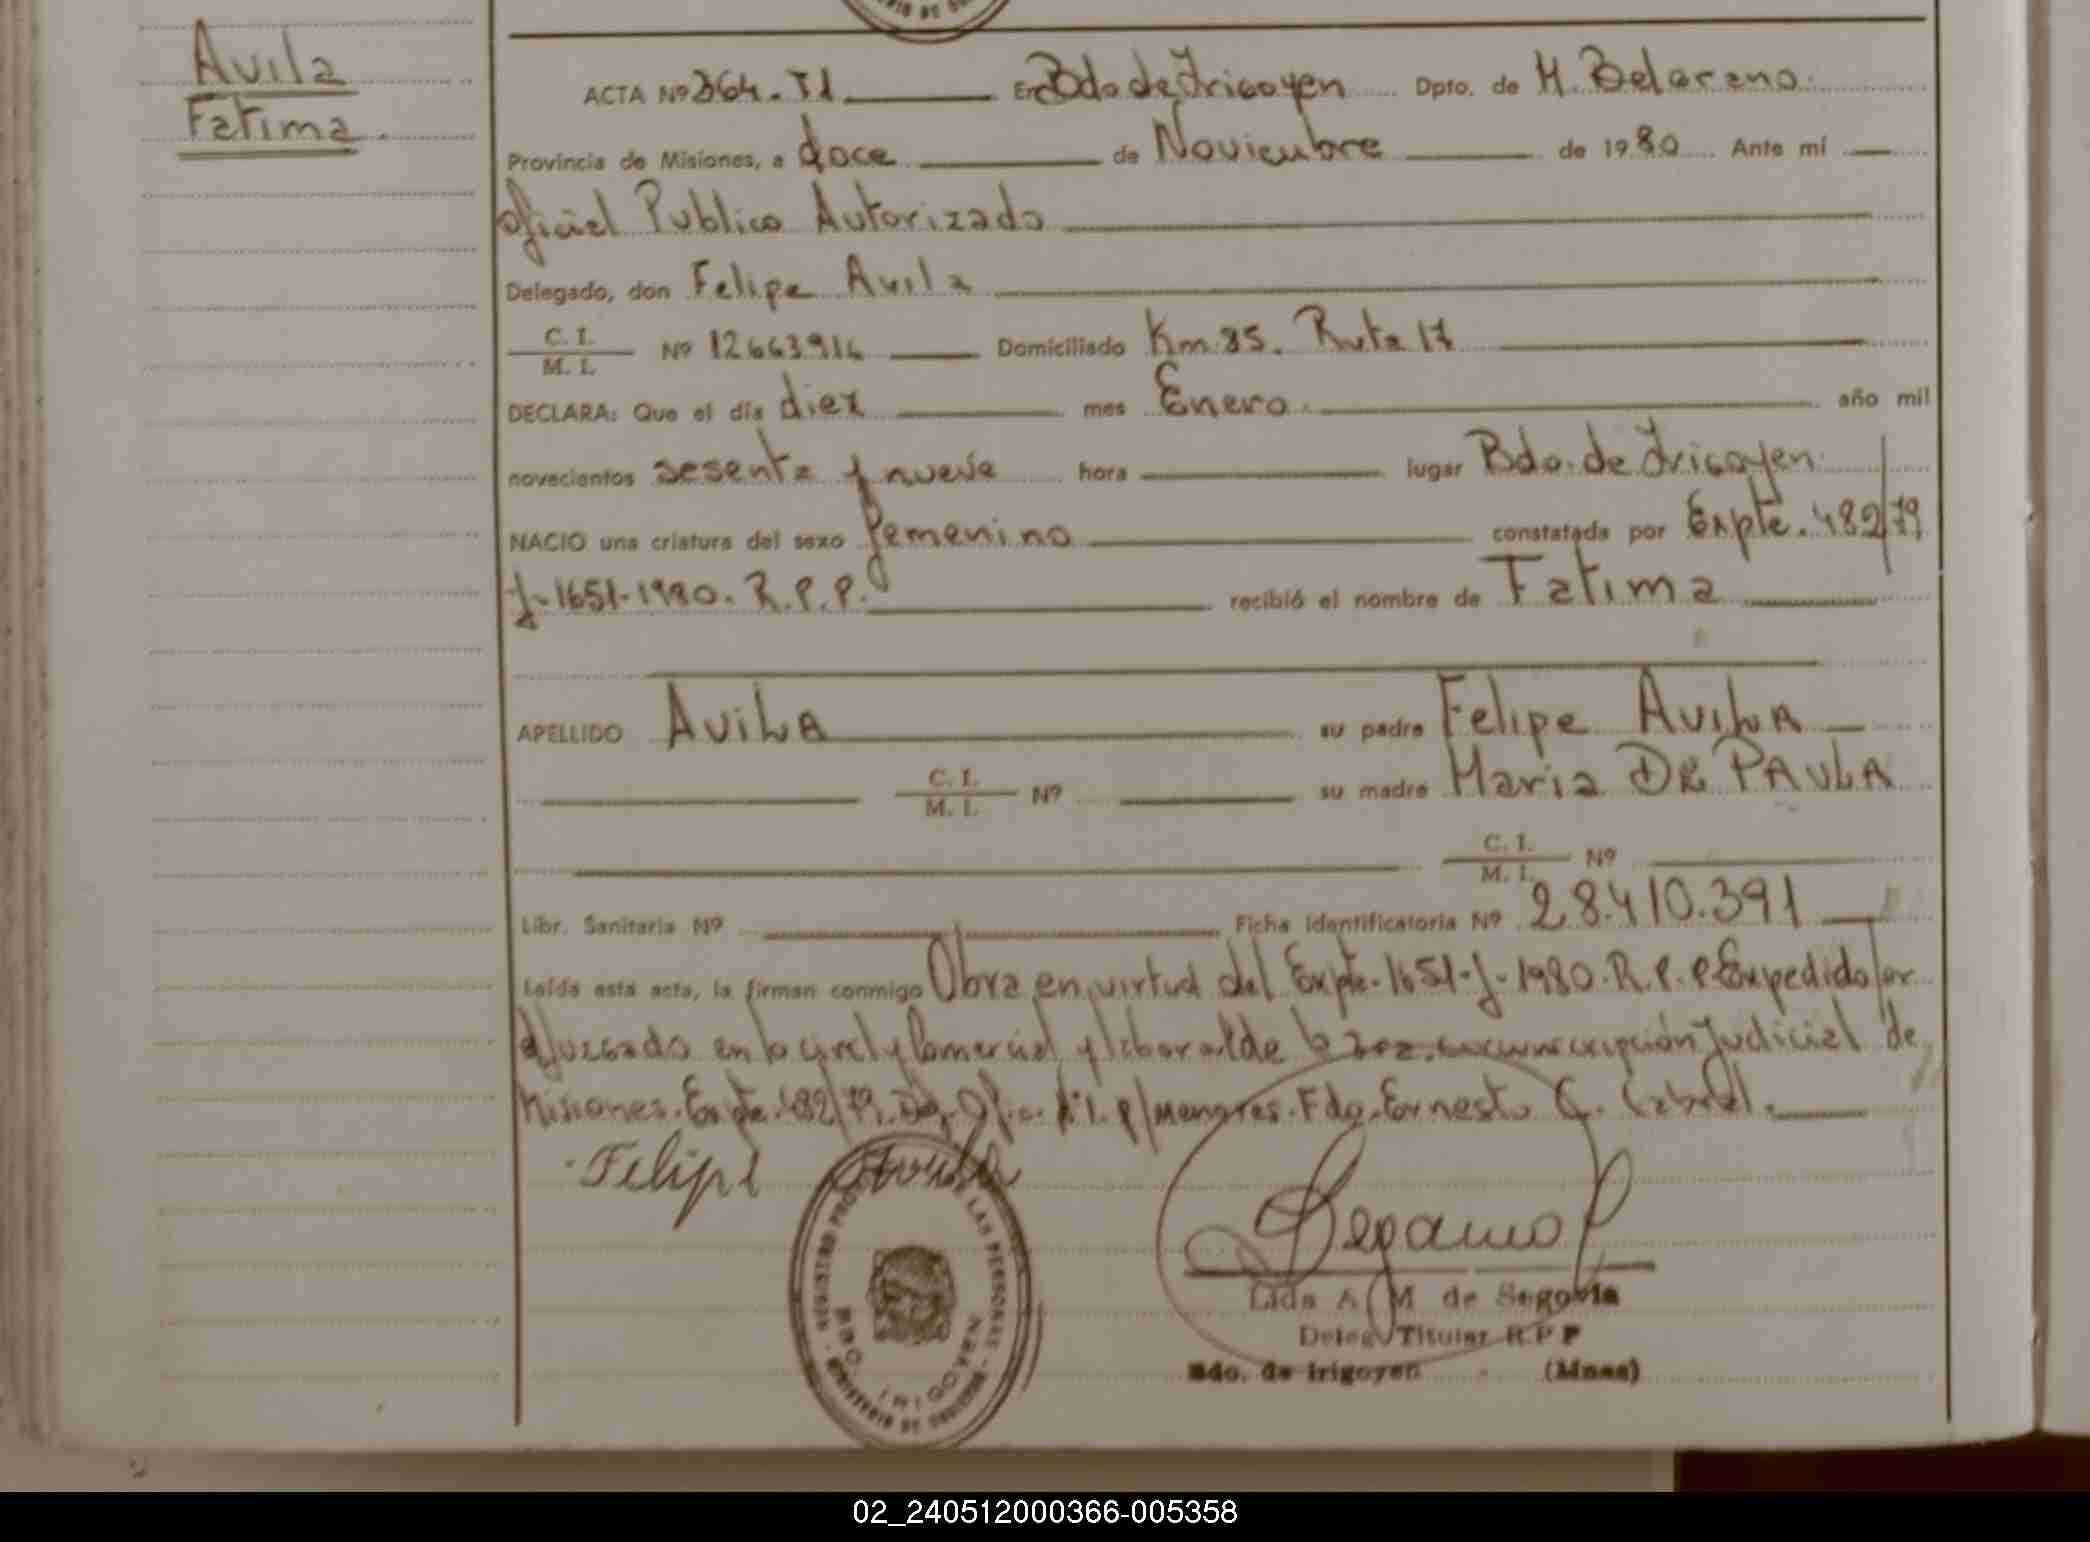 Avila
Fatima.
ACTA Nº 364. TI. En Bdo de Irigoyen Dpto. de M. Belgrano.
Provincia de Misiones, a doce de Noviembre de 1980 Ante mí
oficial Publico Autorizado
Delegado, don Felipe Avila
C. I.
M. I. Nº 12663916 Domiciliado Km 85. Ruta 17
DECLARA: Que el día diez mes Enero. año mil
novecientos sesenta y nueve hora lugar Bdo. de Irigoyen
NACIO una criatura del sexo femenino constatada por Expte. 482/79
J-1651-1980. R.P.P. recibió el nombre de Fatima
APELLIDO AviLA su padre Felipe AviLA
C. I.
M. I. Nº su madre Maria DE PAULA
C. I.
M. I. Nº
Libr. Sanitaria Nº Ficha identificatoria Nº 28.410.391
Leída esta acta, la firman conmigo Obra en virtud del Expte-1651-J-1980. R.P.P Expedido por
el Juzgado en lo Civil y Comercial y laboral de la circunscripción Judicial de
Misiones. Expte. 482/79. p/Menores. Fdo. Ernesto C. Cabral.
Felipe Avila
REGISTRO PROV. DE LAS PERSONAS - MINISTERIO DE GOBIERNO
BDO. IRIGOYEN
Lida A. M de Segovia
Deleg. Titular R.P P
Bdo. de Irigoyen (Mnes)
02_240512000366-005358